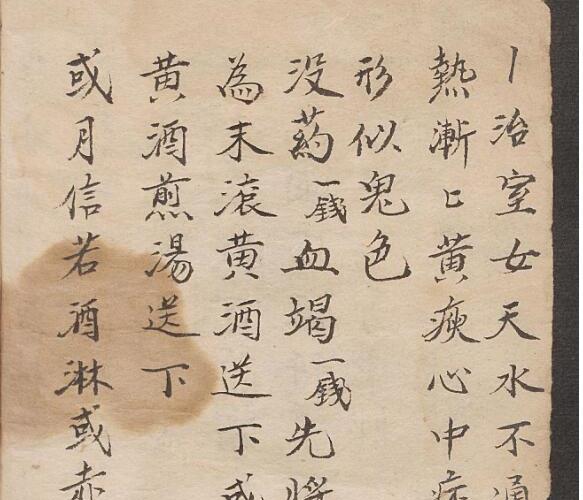 丨治室女天水不通
熱漸〻黃瘐心中疼
形似鬼色
没药一錢血竭一錢先將
為末滚黄酒送下或
黄酒煎湯送下
或月信若酒淋或赤